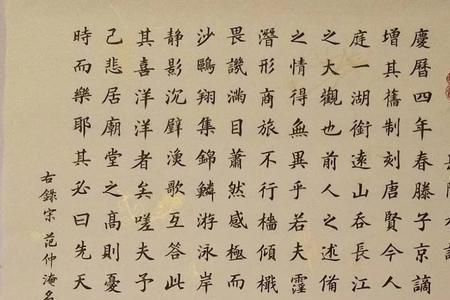 慶曆四年春滕子京謫
增其舊制刻唐賢今人
庭一湖銜遠山吞長江
之大觀也前人之述備
之情得無異乎若夫霪
潛形商旅不行檣傾檝
畏譏滿目蕭然感極而
沙鷗翔集錦鱗游泳岸
靜影沉璧漁歌互答此
其喜洋洋者矣嗟夫予
己悲居廟堂之高則憂
時而樂耶其必曰先天
右錄宋范仲淹名